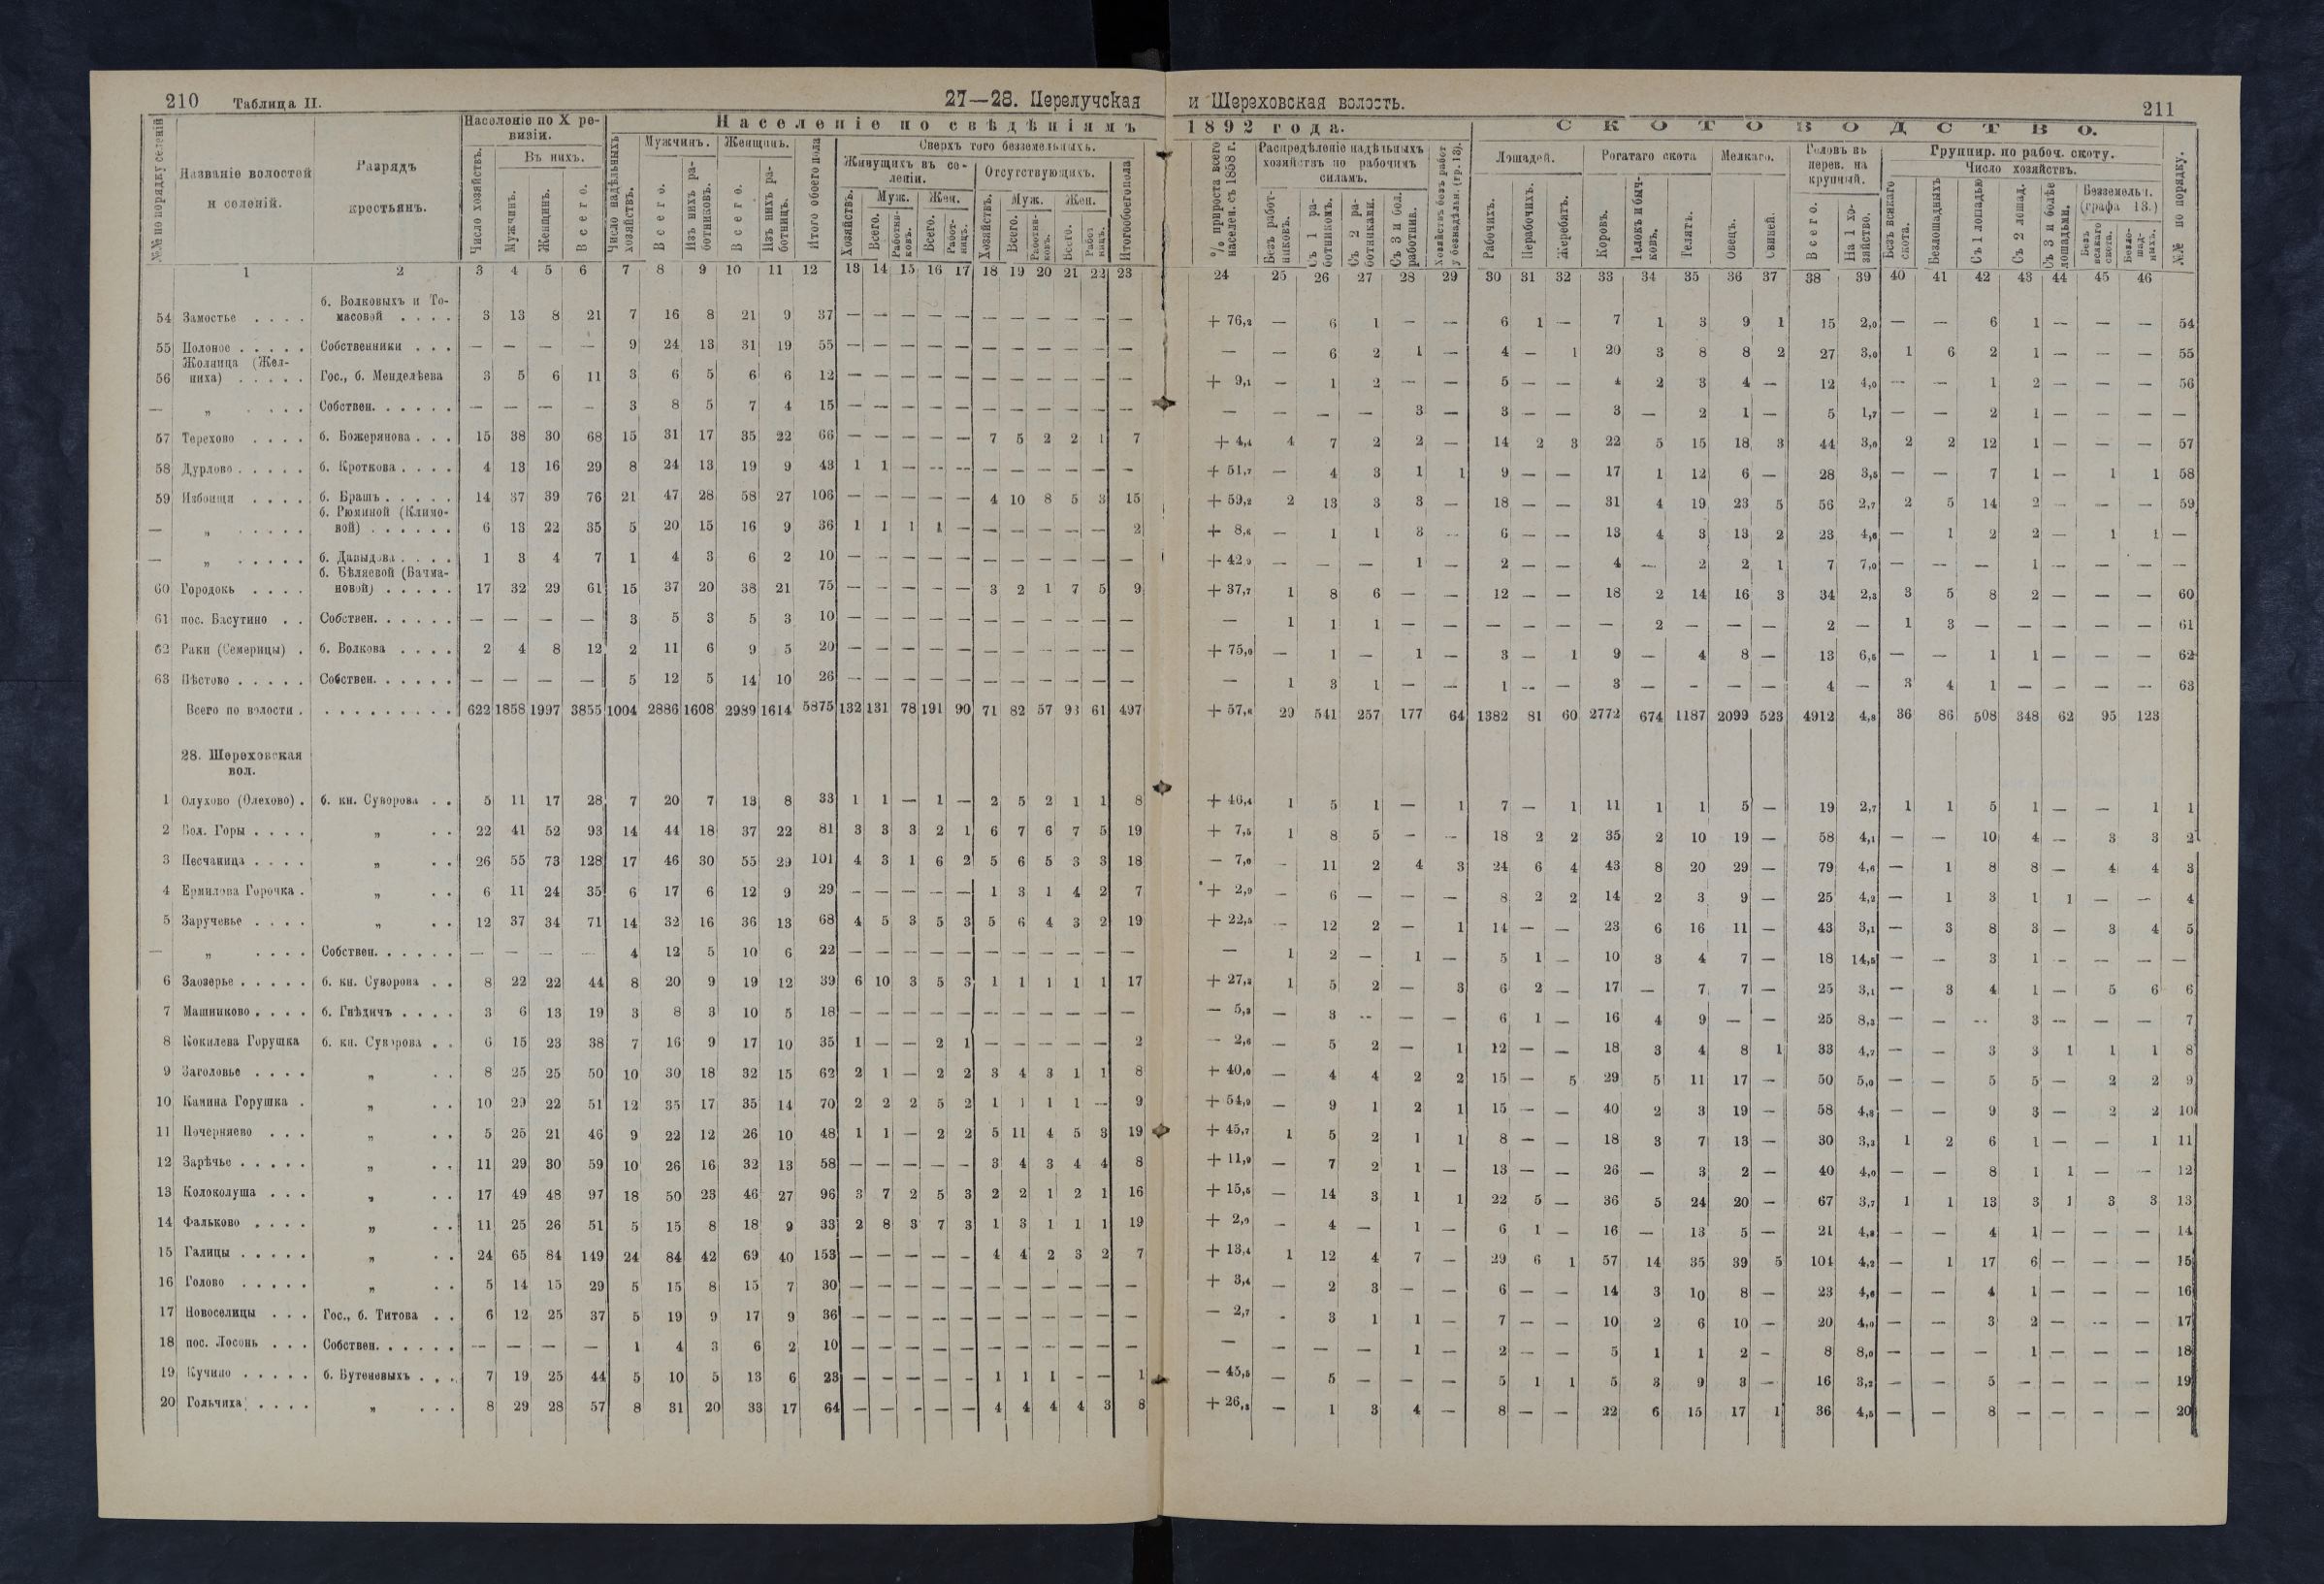 210 Таблица II. 27—28. Перелучская
Населеніе по X ревизіи.
Населеніе по свѣдѣніямъ
№№ по порядку селеній
Названіе волостей и селеній.
Разрядъ крестьянъ.
Число хозяйствъ. Въ нихъ. Мужчинъ. Женщинъ. Всего.
Число надѣльныхъ хозяйствъ. Мужчинъ. Всего. Изъ нихъ работниковъ. Женщинъ. Всего. Изъ нихъ работницъ. Итого обоего пола
Сверхъ того безземельныхъ.
Живущихъ въ селеніи. Отсутствующихъ.
1 2 3 4 5 6 7 8 9 10 11 12 13 14 15 16 17 18 19 20 21 22 23
54 Замостье б. Волковыхъ и Томасовой 3 13 8 21 7 16 8 21 9 37 — — — — — — — — — — —
55 Полоное Собственники — — — — 9 24 13 31 19 55 — — — — — — — — — — —
56 Жолница (Желниха) Гос., б. Менделѣева 3 5 6 11 3 6 5 6 6 12 — — — — — — — — — — —
— „ Собствен. — — — — 3 8 5 7 4 15 — — — — — — — — — — —
57 Терехово б. Божерянова 15 38 30 68 15 31 17 35 22 66 — — — — — 7 5 2 2 1 7
58 Дурлово б. Кроткова 4 13 16 29 8 24 13 19 9 43 1 1 — — — — — — — — —
59 Избоищи б. Брашъ 14 37 39 76 21 47 28 58 27 106 — — — — — 4 10 8 5 3 15
— „ б. Рюминой (Климовой) 6 13 22 35 5 20 15 16 9 36 1 1 1 1 — — — — — — 2
— „ б. Давыдова 1 3 4 7 1 4 3 6 2 10 — — — — — — — — — — —
60 Городокъ б. Бѣляевой (Бачмановой) 17 32 29 61 15 37 20 38 21 75 — — — — — 3 2 1 7 5 9
61 пос. Басутино Собствен. — — — — 3 5 3 5 3 10 — — — — — — — — — — —
62 Раки (Семерицы) б. Волкова 2 4 8 12 2 11 6 9 5 20 — — — — — — — — — — —
63 Пѣстово Собствен. — — — — 5 12 5 14 10 26 — — — — — — — — — — —
Всего по волости 622 1858 1997 3855 1004 2886 1608 2989 1614 5875 132 131 78 191 90 71 82 57 93 61 497
28. Шереховская вол.
1 Олухово (Олехово) б. кн. Суворова 5 11 17 28 7 20 7 13 8 33 1 1 — 1 — 2 5 2 1 1 8
2 Бол. Горы „ 22 41 52 93 14 44 18 37 22 81 3 3 3 2 1 6 7 6 7 5 19
3 Песчаница „ 26 55 73 128 17 46 30 55 29 101 4 3 1 6 2 5 6 5 3 3 18
4 Ермилова Горочка „ 6 11 24 35 6 17 6 12 9 29 — — — — — 1 3 1 4 2 7
5 Заручевье „ 12 37 34 71 14 32 16 36 13 68 4 5 3 5 3 5 6 4 3 2 19
— „ Собствен. — — — — 4 12 5 10 6 22 — — — — — — — — — — —
6 Заозерье б. кн. Суворова 8 22 22 44 8 20 9 19 12 39 6 10 3 5 3 1 1 1 1 1 17
7 Машниково б. Гнѣдичъ 3 6 13 19 3 8 3 10 5 18 — — — — — — — — — — —
8 Кокилева Горушка б. кн. Суворова 6 15 23 38 7 16 9 17 10 35 1 — — 2 1 — — — — — 2
9 Заголовье „ 8 25 25 50 10 30 18 32 15 62 2 1 — 2 2 3 4 3 1 1 8
10 Канина Горушка „ 10 29 22 51 12 35 17 35 14 70 2 2 2 5 2 1 1 1 1 — 9
11 Почерняево „ 5 25 21 46 9 22 12 26 10 48 1 1 — 2 2 5 11 4 5 3 19
12 Зарѣчье „ 11 29 30 59 10 26 16 32 13 58 — — — — — 3 4 3 4 4 8
13 Колоколуша „ 17 49 48 97 18 50 23 46 27 96 3 7 2 5 3 2 2 1 2 1 16
14 Фальково „ 11 25 26 51 5 15 8 18 9 33 2 8 3 7 3 1 3 1 1 1 19
15 Галицы „ 24 65 84 149 24 84 42 69 40 153 — — — — — 4 4 2 3 2 7
16 Голово „ 5 14 15 29 5 15 8 15 7 30 — — — — — — — — — — —
17 Новоселицы Гос., б. Титова 6 12 25 37 5 19 9 17 9 36 — — — — — — — — — — —
18 пос. Лосонь Собствен. — — — — 1 4 3 6 2 10 — — — — — — — — — — —
19 Кучино б. Бутеневыхъ 7 19 25 44 5 10 5 13 6 23 — — — — — 1 1 1 — — 1
20 Гольчиха „ 8 29 28 57 8 31 20 33 17 64 — — — — — 4 4 4 4 3 8
и Шереховская волость. 211
1892 года. СКОТОВОДСТВО.
% прироста всего населен. съ 1858 г.
Распредѣленіе надѣльныхъ хозяйствъ по рабочимъ силамъ.
Безъ работниковъ. Съ 1 работникомъ. Съ 2 работниками. Съ 3 и бол. работник. Хозяйствъ безъ работ. у безнадѣльн. (гр. 13).
Лошадей. Рабочихъ. Нерабочихъ. Жеребятъ.
Рогатаго скота Коровъ. Телокъ и бычковъ. Телятъ.
Мелкаго. Овецъ. Свиней.
Головъ въ перев. на крупный. Всего. На 1 хозяйство.
Группир. по рабоч. скоту. Число хозяйствъ.
Безъ всякаго скота. Безлошадныхъ Съ 1 лошадью Съ 2 лошад. Съ 3 и болѣе лошадьми. Безземельн. (графа 13.) Безъ всякаго скота. Безлошадныхъ.
№№ по порядку.
24 25 26 27 28 29 30 31 32 33 34 35 36 37 38 39 40 41 42 43 44 45 46
+ 76,2 — 6 1 — — 6 1 — 7 1 3 9 1 15 2,0 — — 6 1 — — — 54
— — 6 2 1 — 4 — 1 20 3 8 8 2 27 3,0 1 6 2 1 — — — 55
+ 9,1 — 1 2 — — 5 — — 4 2 3 4 — 12 4,0 — — 1 2 — — — 56
— — — — 3 — 3 — — 3 — 2 1 — 5 1,7 — — 2 1 — — — —
+ 4,4 4 7 2 2 — 14 2 3 22 5 15 18 3 44 3,0 2 2 12 1 — — — 57
+ 51,7 — 4 3 1 1 9 — — 17 1 12 6 — 28 3,5 — — 7 1 — 1 1 58
+ 59,2 2 13 3 3 — 18 — — 31 4 19 23 5 56 2,7 2 5 14 2 — — — 59
+ 8,6 — 1 1 3 — 6 — — 13 4 3 13 2 23 4,6 — 1 2 2 — 1 1 —
+ 42,9 — — — 1 — 2 — — 4 — 2 2 1 7 7,0 — — — 1 — — — —
+ 37,7 1 8 6 — — 12 — — 18 2 14 16 3 34 2,3 3 5 8 2 — — — 60
— 1 1 1 — — — — — — 2 — — — 2 — 1 3 — — — — — 61
+ 75,0 — 1 — 1 — 3 — 1 9 — 4 8 — 13 6,5 — — 1 1 — — — 62
— 1 3 1 — — 1 — — 3 — — — — 4 — 3 4 1 — — — — 63
+ 57,6 29 541 257 177 64 1382 81 60 2772 674 1187 2099 523 4912 4,8 36 86 508 348 62 95 123
+ 46,4 1 5 1 — 1 7 — 1 11 1 1 5 — 19 2,7 1 1 5 1 — — 1 1
+ 7,5 1 8 5 — — 18 2 2 35 2 10 19 — 58 4,1 — — 10 4 — 3 3 2
— 7,0 — 11 2 4 3 24 6 4 43 8 20 29 — 79 4,6 — 1 8 8 — 4 4 3
+ 2,9 — 6 — — — 8 2 2 14 2 3 9 — 25 4,2 — 1 3 1 1 — — 4
+ 22,5 — 12 2 — 1 14 — — 23 6 16 11 — 43 3,1 — 3 8 3 — 3 4 5
— 1 2 — 1 — 5 1 — 10 3 4 7 — 18 14,5 — — 3 1 — — — —
+ 27,3 1 5 2 — 3 6 2 — 17 — 7 7 — 25 3,1 — 3 4 1 — 5 6 6
— 5,3 — 3 — — — 6 1 — 16 4 9 — — 25 8,3 — — — 3 — — — 7
— 2,6 — 5 2 — 1 12 — — 18 3 4 8 1 33 4,7 — — 3 3 1 1 1 8
+ 40,0 — 4 4 2 2 15 — 5 29 5 11 17 — 50 5,0 — — 5 5 — 2 2 9
+ 54,9 — 9 1 2 1 15 — — 40 2 3 19 — 58 4,8 — — 9 3 — 2 2 10
+ 45,7 1 5 2 1 1 8 — — 18 3 7 13 — 30 3,3 1 2 6 1 — — 1 11
+ 11,9 — 7 2 1 — 13 — — 26 — 3 2 — 40 4,0 — — 8 1 1 — — 12
+ 15,5 — 14 3 1 1 22 5 — 36 5 24 20 — 67 3,7 1 1 13 3 1 3 3 13
+ 2,0 — 4 — 1 — 6 1 — 16 — 13 5 — 21 4,8 — — 4 1 — — — 14
+ 13,4 1 12 4 7 — 29 6 1 57 14 35 39 5 104 4,2 — 1 17 6 — — — 15
+ 3,4 — 2 3 — — 6 — — 14 3 10 8 — 23 4,6 — — 4 1 — — — 16
— 2,7 — 3 1 1 — 7 — — 10 2 6 10 — 20 4,0 — — 3 2 — — — 17
— — — — 1 — 2 — — 5 1 1 2 — 8 8,0 — — — 1 — — — 18
— 45,5 — 5 — — — 5 1 1 5 3 9 3 — 16 3,2 — — 5 — — — — 19
+ 26,3 — 1 3 4 — 8 — — 22 6 15 17 1 36 4,5 — — 8 — — — — 20